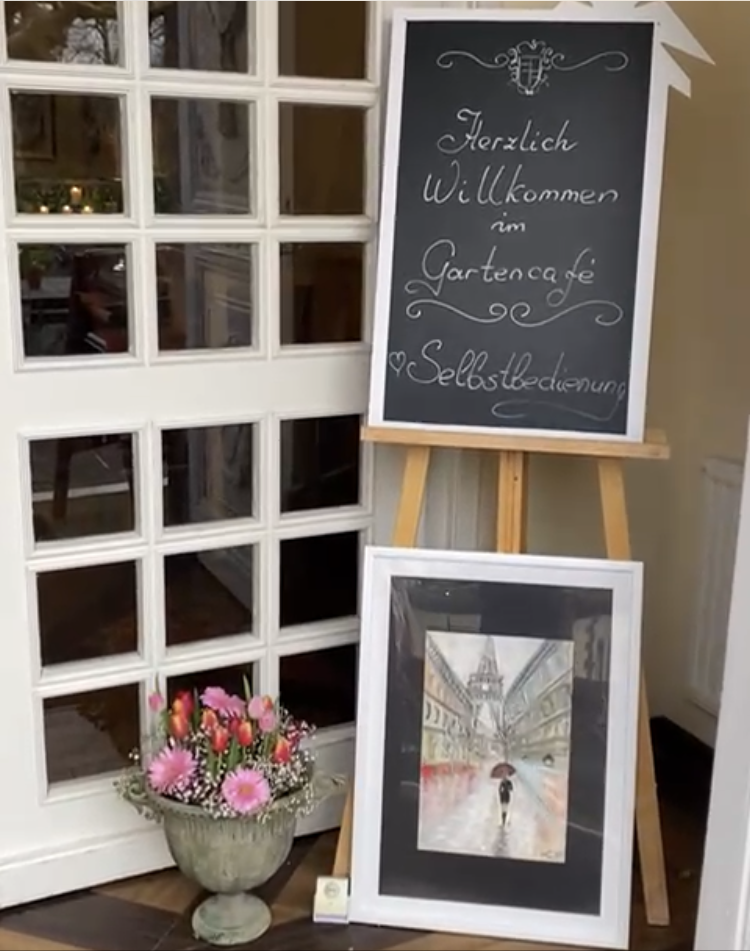 Herzlich
Willkommen
im
Gartencafé
Selbstbedienung